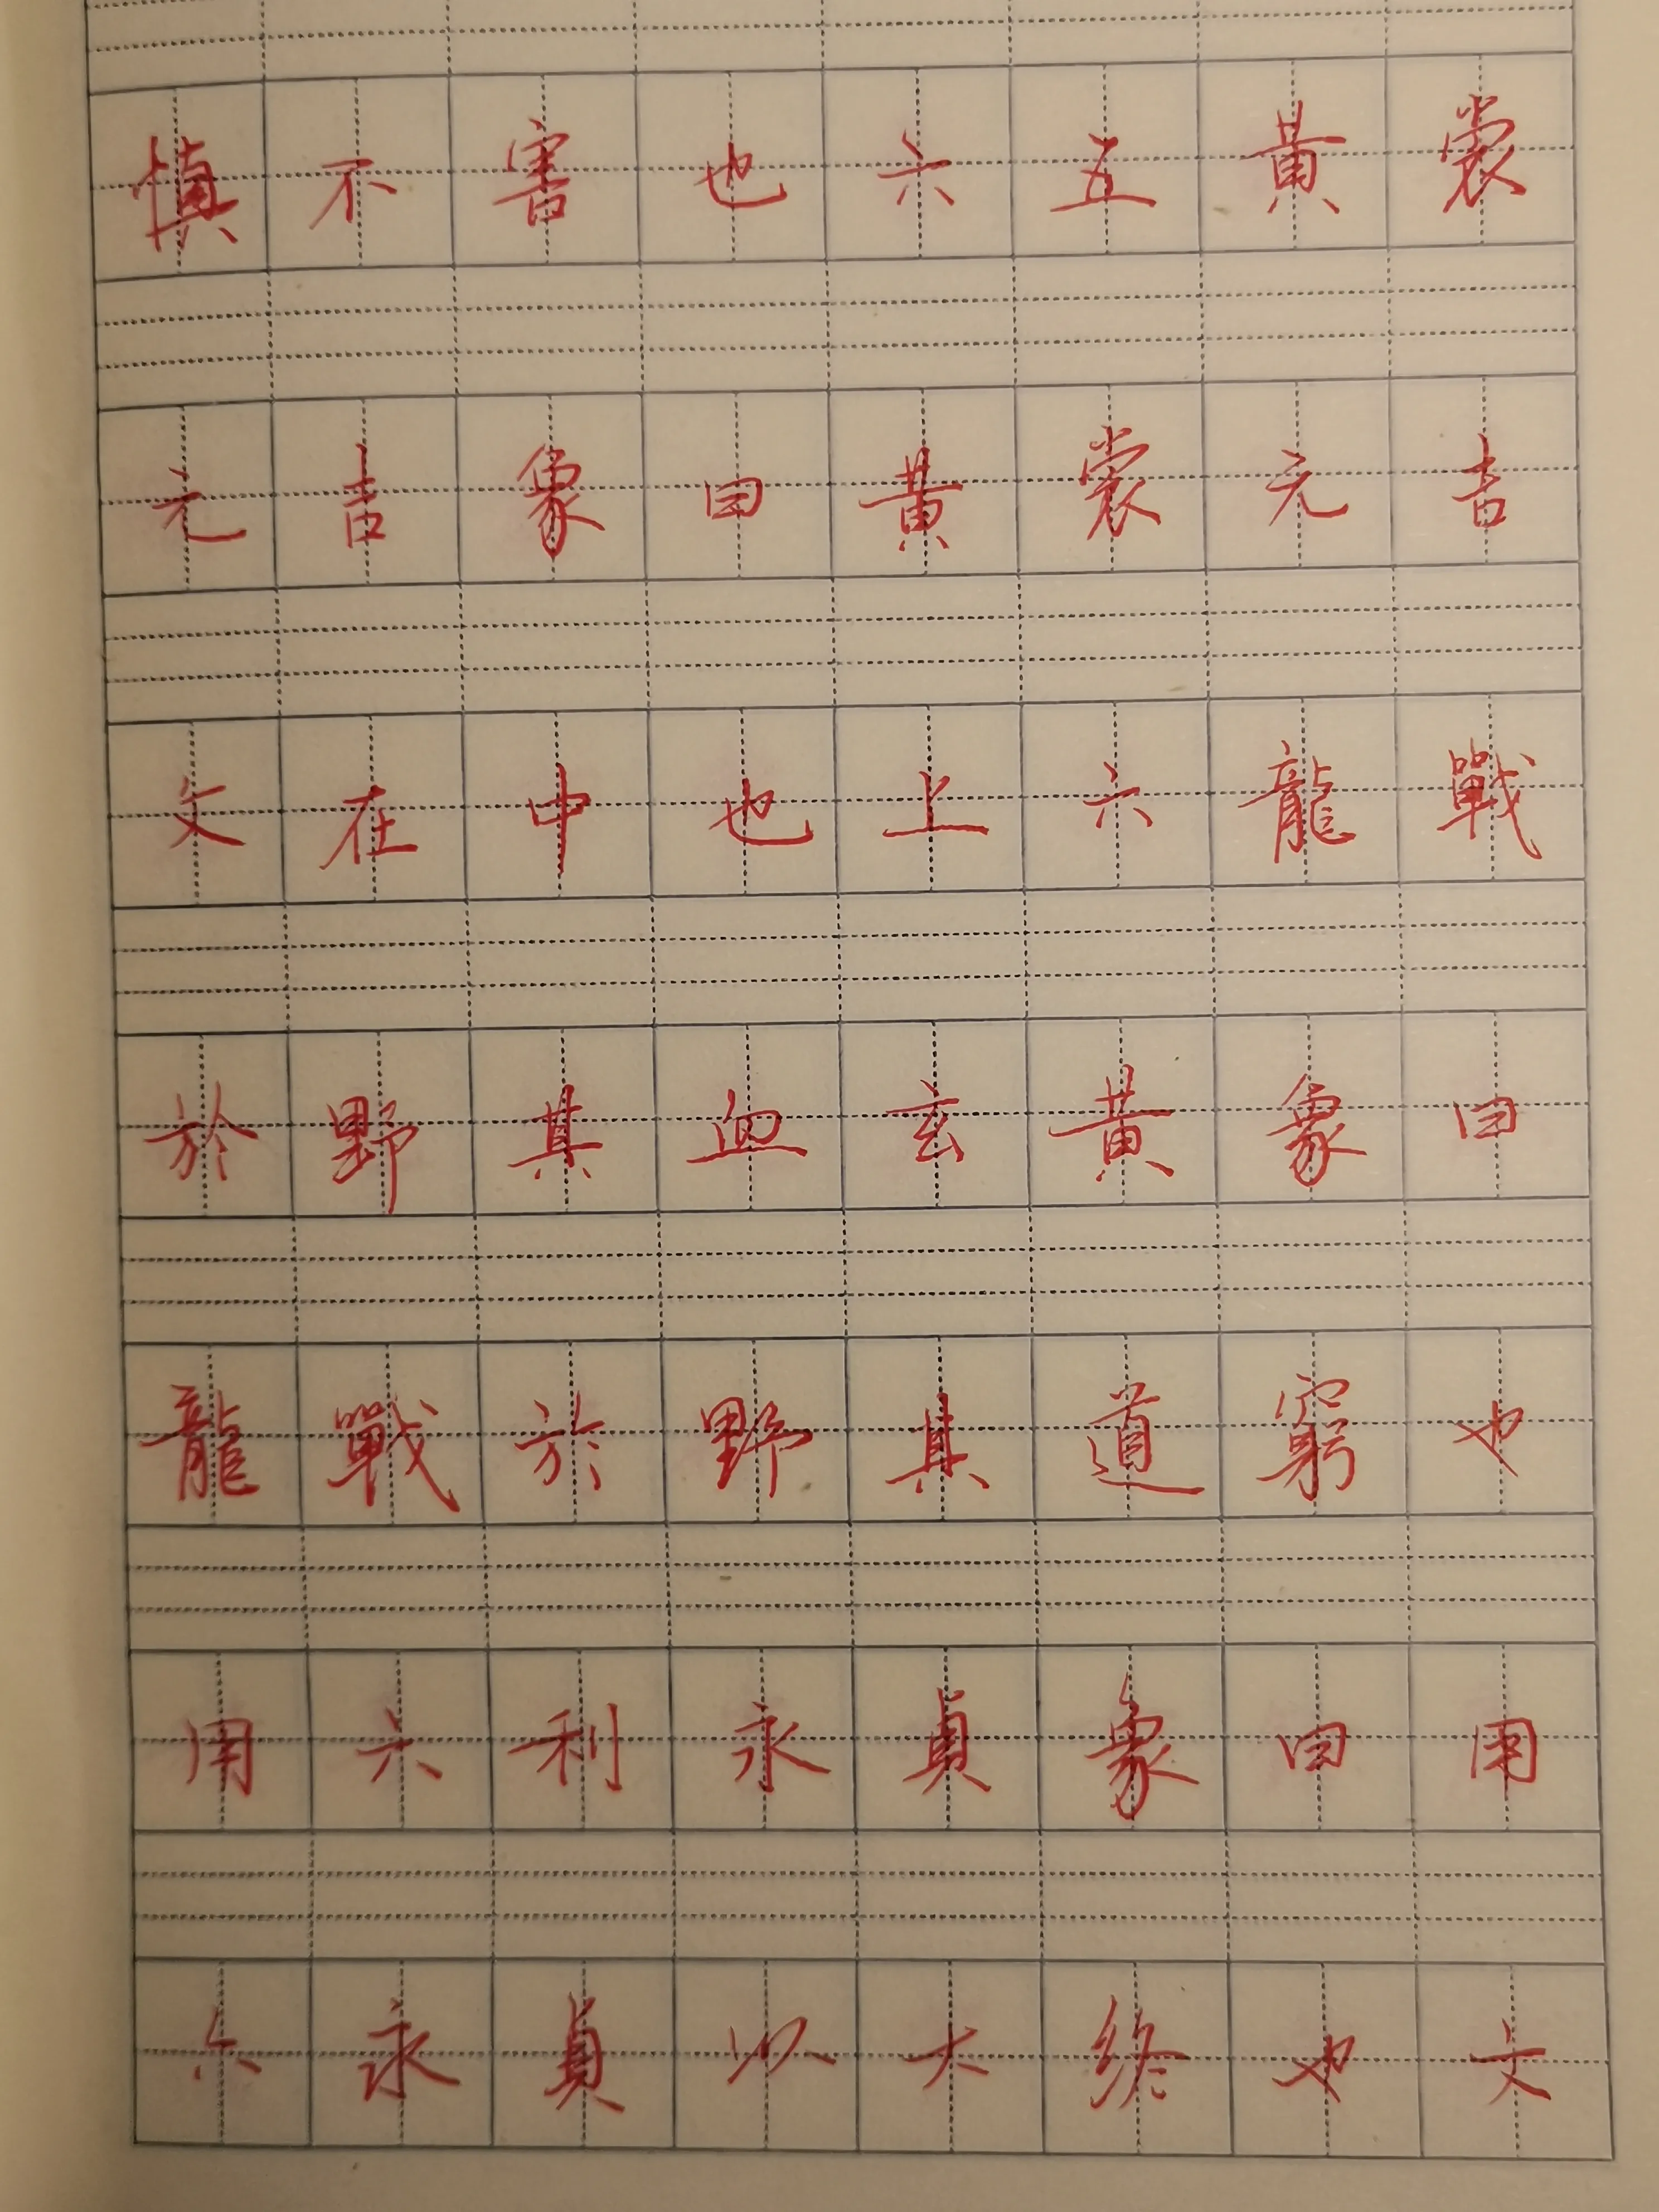 慎不害也六五黄裳
元吉象曰黄裳元吉
文在中也上六龍戰
於野其血玄黄象曰
龍戰於野其道窮也
用六利永貞象曰用
六永貞以大終也文